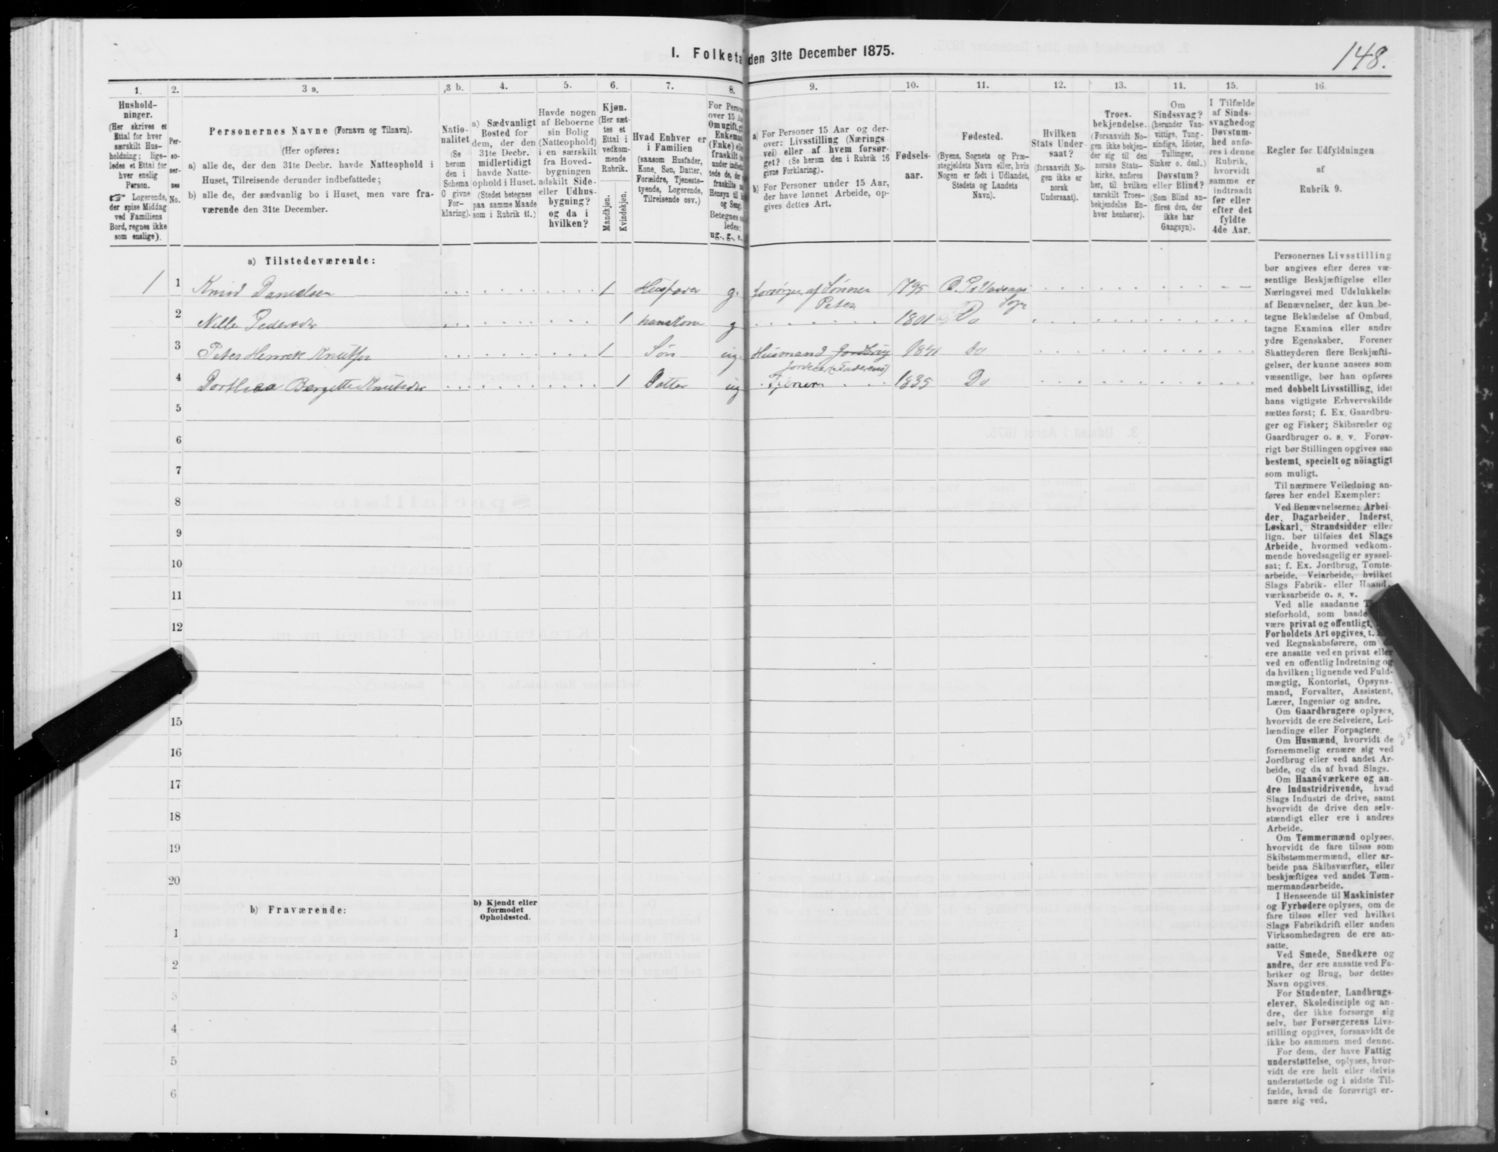 148.
I. Folketa den 31te December 1875.
1. 2. 3 a. 3 b. 4. 5. 6. 7. 8. 9. 10. 11. 12. 13. 14. 15. 16.
Hushold-
ninger.
(Her skrives et
Ettal for hver
særskilt Hus-
holdning; lige-
ledes et Ettal for
hver enslig
Person.
☞ Logerende,
der spise Middag
ved Familiens
Bord, regnes ikke
som enslige).
Per-
so-
ner-
nes
No.
Personernes Navne (Fornavn og Tilnavn).
(Her opføres:
a) alle de, der den 31te Decbr. havde Natteophold i
Huset, Tilreisende derunder indbefattede;
b) alle de, der sædvanlig bo i Huset, men vare fra-
værende den 31te December.
Natio-
nalitet
(Se
herom
den i
Schema
O givne
For-
klaring).
a) Sædvanligt
Bosted for
dem, der den
31te Decbr.
midlertidigt
havde Natte-
ophold i Huset.
(Stedet betegnes
paa samme Maade
som i Rubrik 11.)
Havde nogen
af Beboerne
sin Bolig
(Natteophold)
i en særskilt
fra Hoved-
bygningen
adskilt Side-
eller Udhus-
bygning?
og da i
hvilken?
Kjøn.
(Her sæt-
tes et
Ettal i
vedkom-
mende
Rubrik.
Mandkjøn.
Kvindekjøn.
Hvad Enhver er
i Familien
(saasom Husfader,
Kone, Søn, Datter,
Forældre, Tjeneste-
tyende, Logerende,
Tilreisende osv.)
For Person
over 15 Aa
Om ugift, g
Enkeman
(Enke) ell
fraskilt
ledes:
ug., g., e.,
a) For Personer 15 Aar og der-
over: Livsstilling (Nærings
vei) eller af hvem forsør-
get? (Se herom den i Rubrik 16
givne Forklaring).
b) For Personer under 15 Aar,
der have lønnet Arbeide, op-
gives dettes Art.
Fødsels-
aar.
Fødested.
(Byens, Sognets og Præ-
stegjeldets Navn eller, hvis
Nogen er født i Udlandet,
Stedets og Landets
Navn).
Hvilken
Stats Under-
saat?
(forsaavidt No-
gen ikke er
norsk
Undersaat).
Troes-
bekjendelse.
(Forsaavidt No-
gen ikke bekjen-
der sig til den
norske Stats-
kirke, anføres
her, til hvilken
særskilt Troes-
bekjendelse En-
hver henhører).
Om
Sindssvag?
(herunder Van-
vittige, Tung-
sindige, Idioter,
Tullinger,
Sinker o. desl.)
Døvstum?
eller Blind?
(Som Blind an-
føres den, der
ikke har
Gangsyn).
I Tilfælde
af Sinds-
svaghed og
Døvstum-
hed anfø-
res i denne
Rubrik,
hvorvidt
samme er
indtraadt
før eller
efter det
fyldte
4de Aar.
Regler for Udfyldningen
af
Rubrik 9.
a) Tilstedeværende:
1 1 Knud Danielsen 1 Husfader g. forsørges af Sønnen Peter 1795 Sogn
2 Nille Pedersdr 1 hans Kone g 1801 Do
3 Peter Henrik Knutsen 1 Søn ug Husmand 184 Do
4 Dorthea Bergette Knutsdr 1 Datter ug Tjener 1835 Do
5
6
7
8
9
10
11
12
15
16
17
18
19
20
b) Fraværende:
b) Kjendt eller
formodet
Opholdssted.
1
2
3
4
5
6
Personernes Livsstilling
bør angives efter deres væ-
sentlige Beskjæftigelse eller
Næringsvei med Udelukkelse
af Benævnelser, der kun be-
tegne Beklædelse af Ombud,
tagne Examina eller andre
ydre Egenskaber. Forener
Skatteyderen flere Beskjæfti-
gelser, der kunne ansees som
væsentlige, bør han opføres
med dobbelt Livsstilling, idet
hans vigtigste Erhvervskilde
sættes først; f. Ex. Gaardbru-
ger og Fisker; Skibsreder og
Gaardbruger o. s. v. Forøv-
rigt bør Stillingen opgives saa
bestemt, specielt og nöiagtigt
som muligt.
Til nærmere Veiledning an-
føres her endel Exempler:
Ved Benævnelserne: Arbei-
der, Dagarbeider, Inderst,
Løskarl, Strandsidder eller
lign. bør tilføies det Slags
Arbeide, hvormed vedkom-
mende hovedsagelig er syssel-
sat; f. Ex. Jordbrug, Tomte-
arbeide, Veiarbeide, hvilket
Slags Fabrik- eller Haand-
værksarbeide o. s. v.
Ved alle saadanne
steforhold, som baade
være privat og offentligt,
Forholdets Art opgives,
ved Regnskabsførere, om
ere ansatte ved en privat eller
ved en offentlig Indretning og
da hvilken; lignende ved Fuld-
mægtig, Kontorist, Opsyns-
mand, Forvalter, Assistent,
Lærer, Ingeniør og andre.
Om Gaardbrugere oplyses,
hvorvidt de ere Selveiere, Lei-
lændinge eller Forpagtere.
Om Husmænd, hvorvidt de
fornemmelig ernære sig ved
Jordbrug eller ved andet Ar-
beide, og da af hvad Slags.
Om Haandværkere og an-
dre Industridrivende, hvad
Slags Industri de drive, samt
hvorvidt de drive den selv-
stændigt eller ere i andres
Arbeide.
Om Tømmermænd oplyses,
hvorvidt de fare tilsøs som
Skibstømmermænd, eller ar-
beide paa Skibsværfter, eller
beskjæftiges ved andet Tøm-
mermandsarbeide.
I Henseende til Maskinister
og Fyrbødere oplyses, om de
fare tilsøs eller ved hvilket
Slags Fabrikdrift eller anden
Virksomhedsgren de ere an-
satte.
Ved Smede, Snedkere og
andre, der ere ansatte ved Fa-
briker og Brug, bør dettes
Navn opgives.
For Studenter, Landbrugs-
elever, Skoledisciple og an-
dre, der ikke forsørge sig
selv, bør Forsørgerens Livs-
stilling opgives, forsaavidt de
ikke bo sammen med denne.
For dem, der have Fattig
understøttelse, oplyses, hvor-
vidt de ere helt eller delvis
understøttede og i sidste Til-
fælde, hvad de forøvrigt er-
nære sig ved.